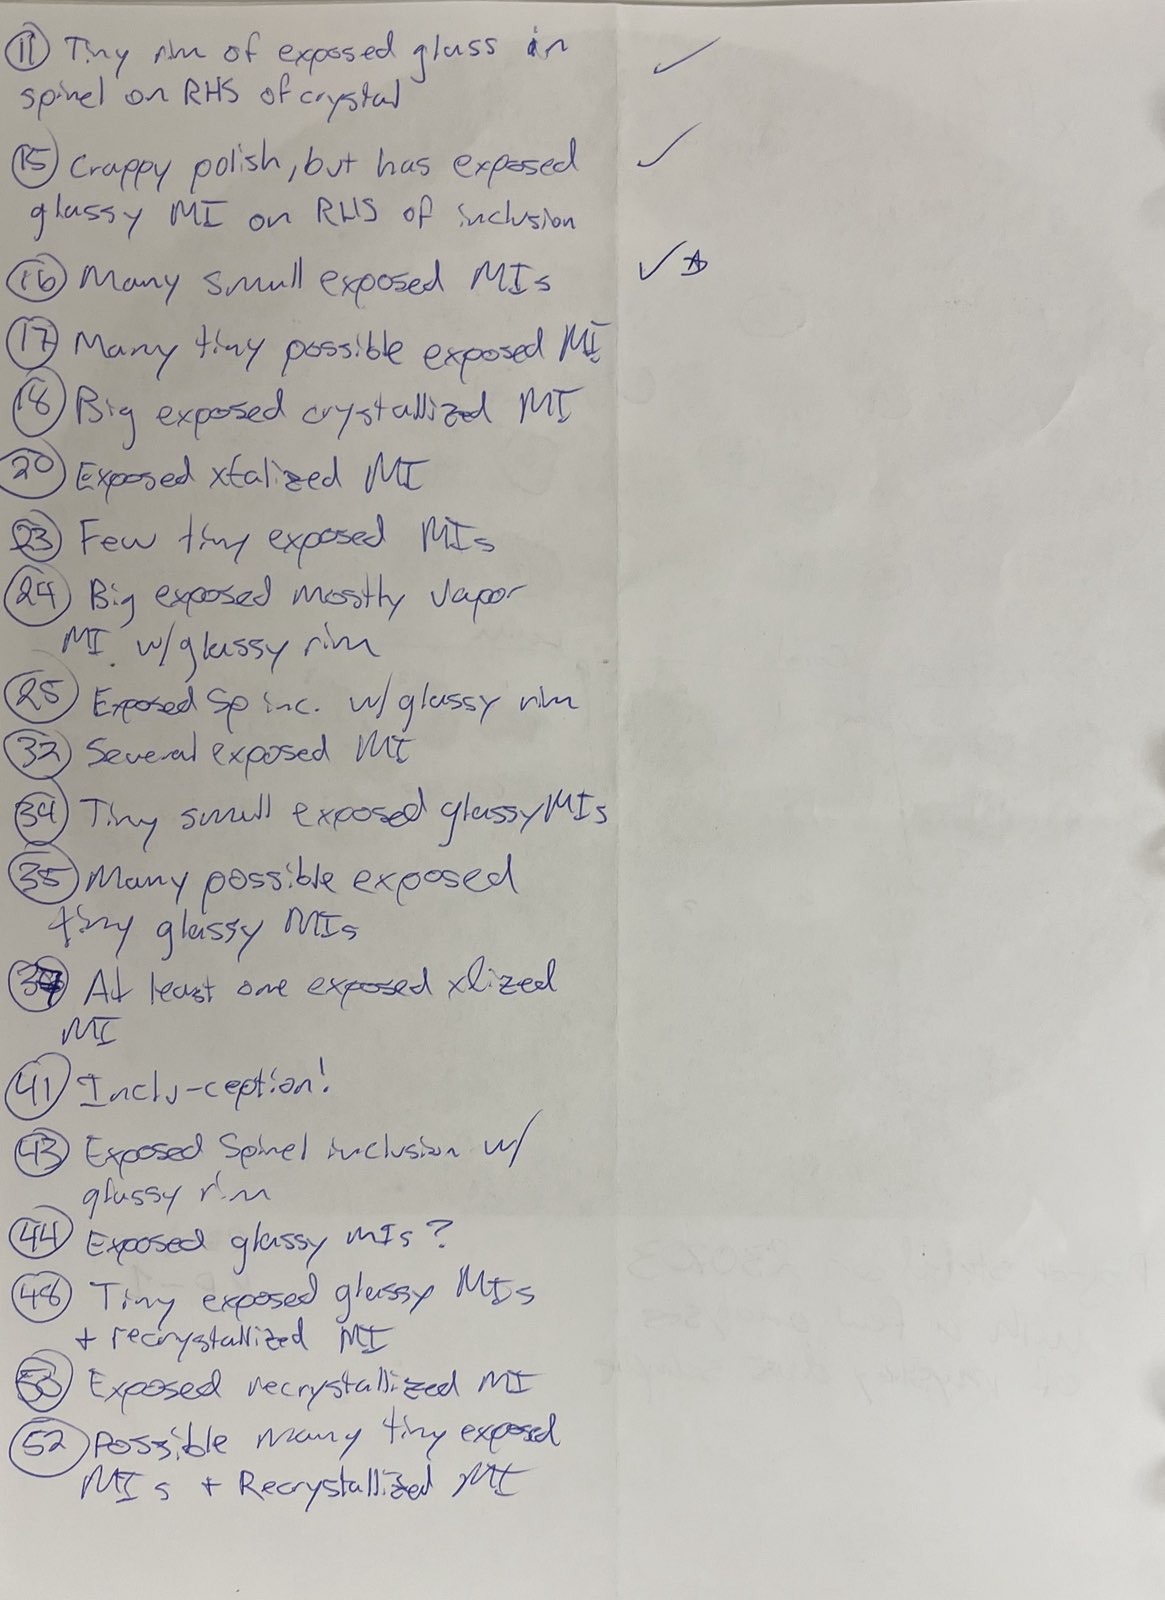 11 Tiny rim of exposed glass in ✓
spinel on RHS of crystal
15 Crappy polish, but has exposed ✓
glassy MI on RHS of inclusion
16 Many small exposed MIs ✓☆
17 Many tiny possible exposed MI
18 Big exposed crystallized MI
20 Exposed xtalized MI
23 Few tiny exposed MIs
24 Big exposed mostly vapor
MI w/glassy rim
25 Exposed Sp inc. w/ glassy rim
32 Several exposed MI
34 Tiny small exposed glassy MIs
35 Many possible exposed
tiny glassy MIs
At least one exposed xlized
MI
41 Inclu-ception!
43 Exposed Spinel inclusion w/
glassy rim
44 Exposed glassy MIs?
48 Tiny exposed glassy MIs
+ recrystallized MI
50 Exposed recrystallized MI
52 Possible many tiny exposed
MIs + Recrystallized MI